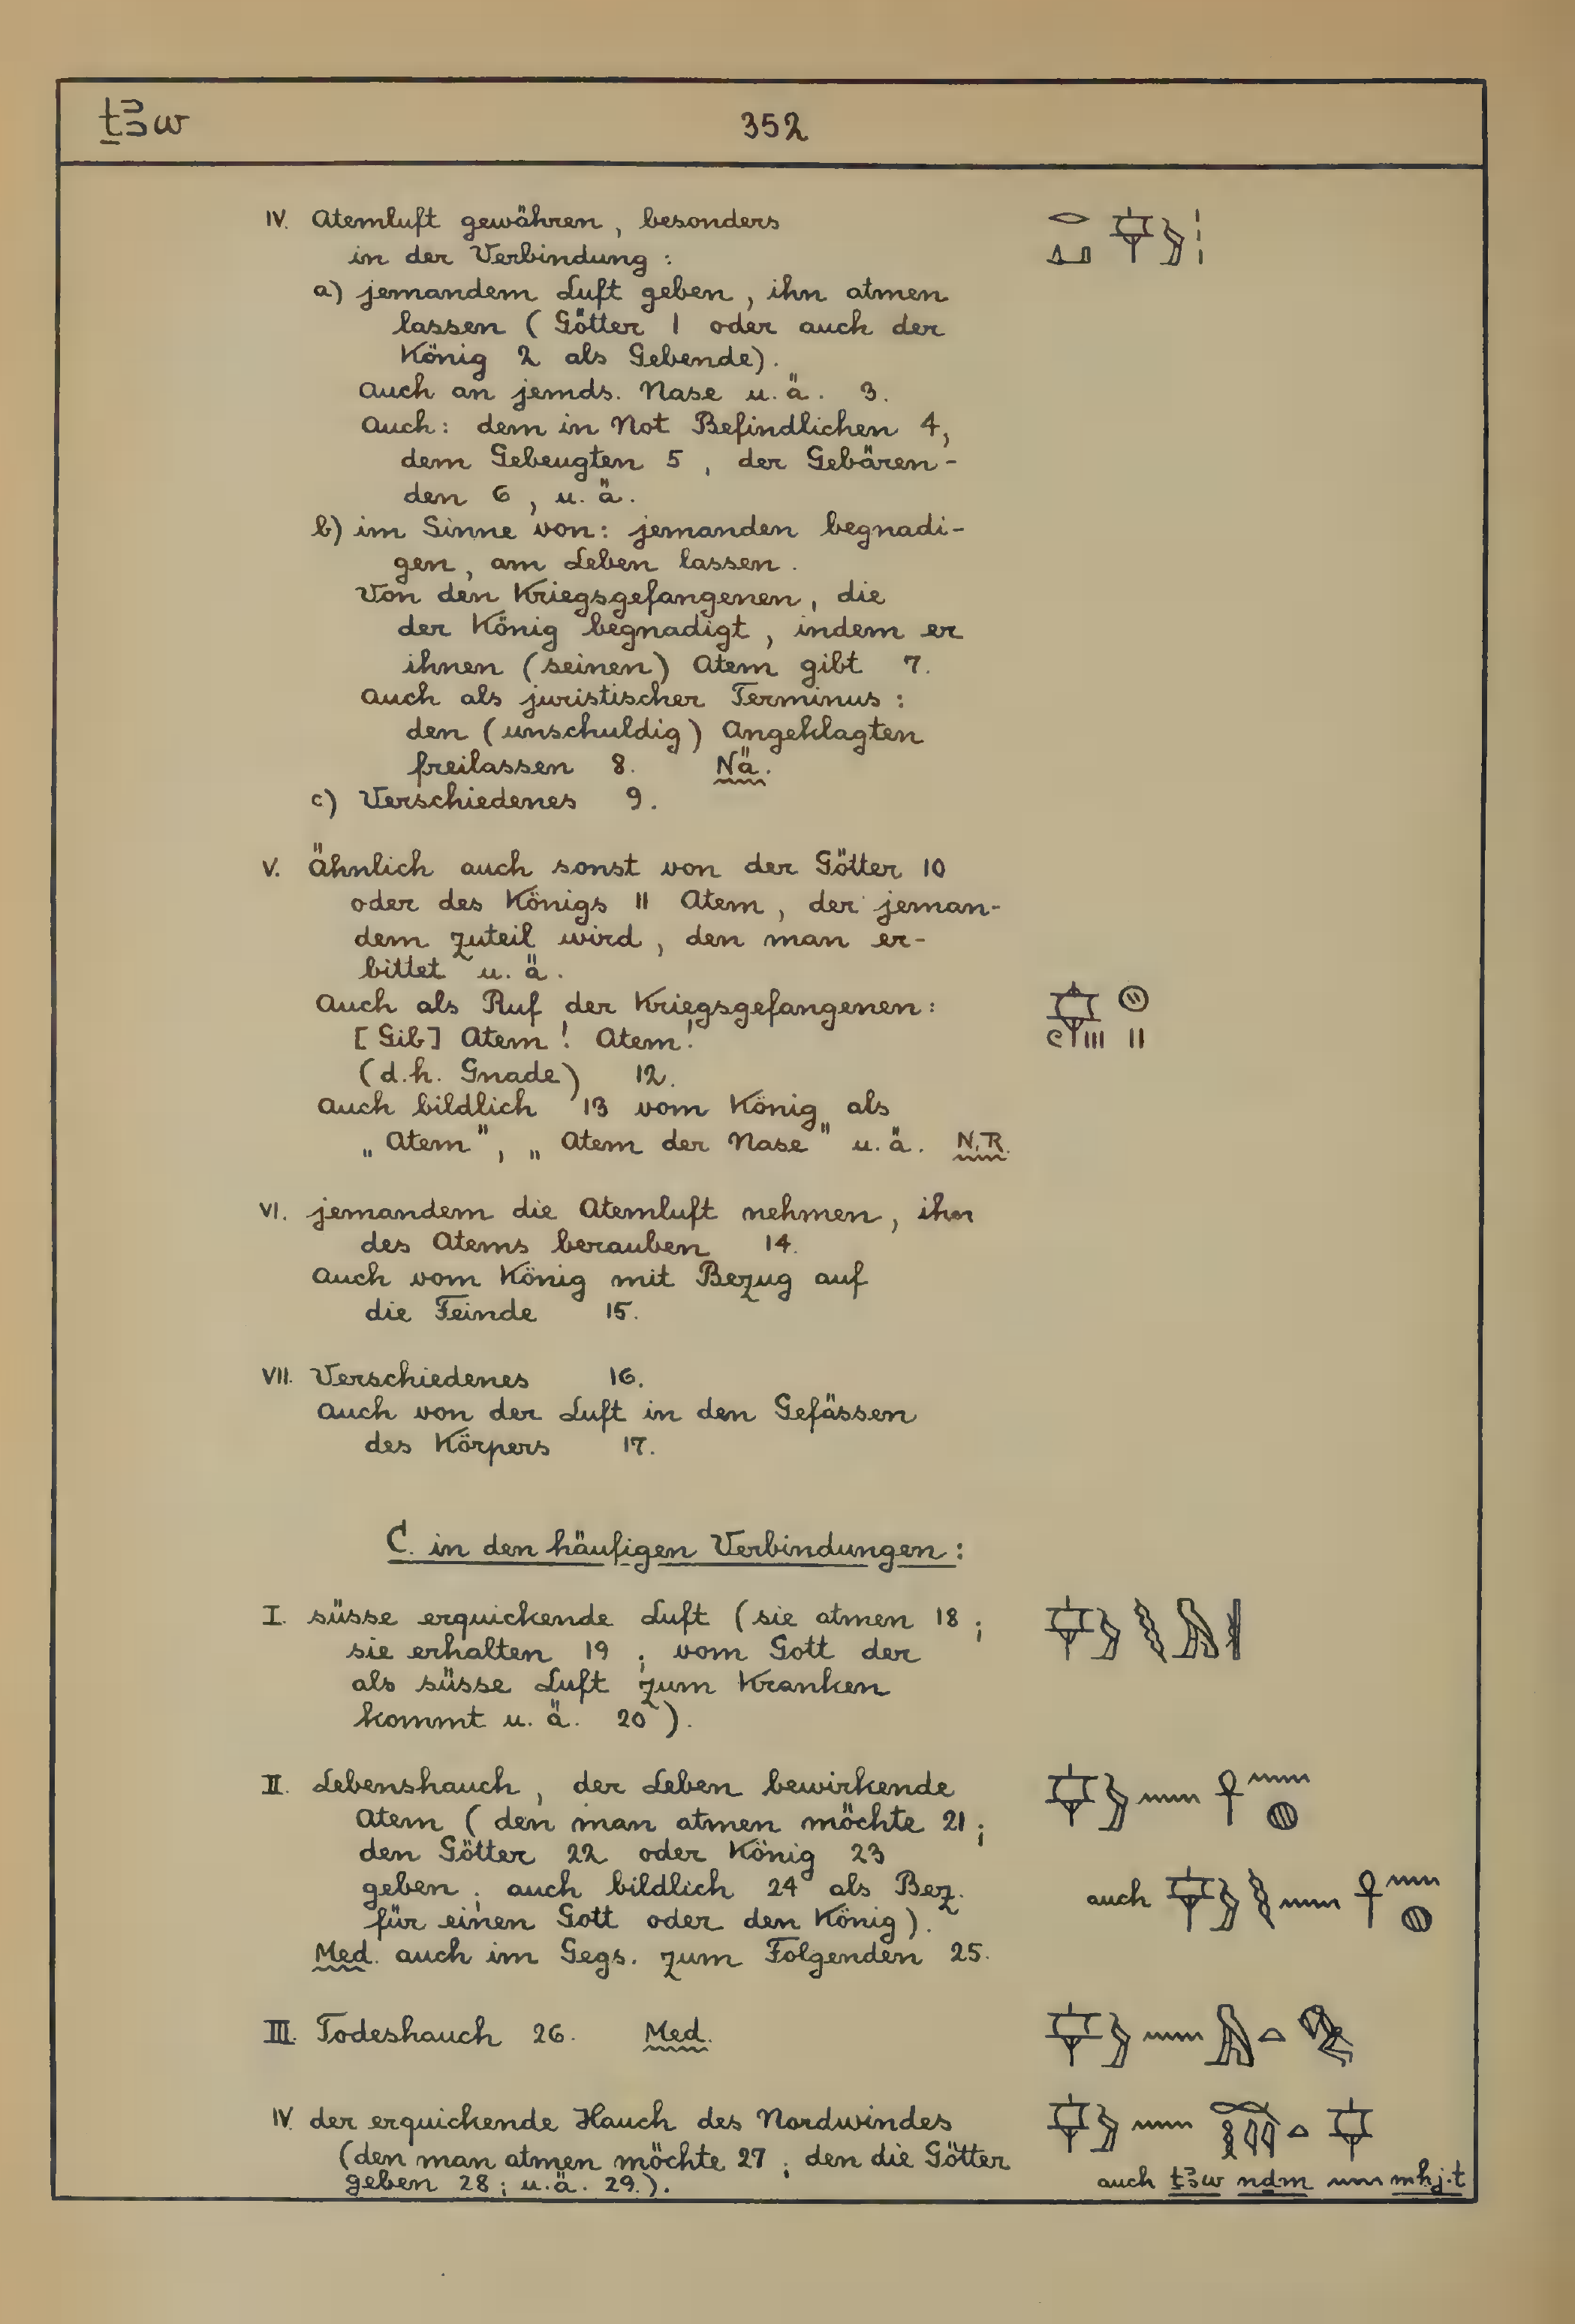 ṯꜣw 352
IV. Atemluft gewähren, besonders
in der Verbindung:
a) jemandem Luft geben, ihn atmen
lassen (Götter 1 oder auch der
König 2 als Gebende).
Auch an jemds. Nase u. ä. 3.
Auch: dem in Not Befindlichen 4,
dem Gebeugten 5, der Gebären-
den 6, u. ä.
b) im Sinne von: jemanden begnadi-
gen, am Leben lassen.
Von den Kriegsgefangenen, die
der König begnadigt, indem er
ihnen (seinen) Atem gibt 7.
Auch als juristischer Terminus:
den (unschuldig) Angeklagten
freilassen 8. Nä.
c) Verschiedenes 9.
V. Ähnlich auch sonst von der Götter 10
oder des Königs 11 Atem, der jeman-
dem zuteil wird, den man er-
bittet u. ä.
Auch als Ruf der Kriegsgefangenen:
[Gib] Atem! Atem!
(d.h. Gnade) 12.
Auch bildlich 13 vom König als
„Atem", „Atem der Nase" u. ä. N.R.
VI. jemandem die Atemluft nehmen, ihn
des Atems berauben 14.
Auch vom König mit Bezug auf
die Feinde 15.
VII. Verschiedenes 16.
Auch von der Luft in den Gefässen
des Körpers 17.
C. in den häufigen Verbindungen:
I. süsse erquickende Luft (sie atmen 18;
sie erhalten 19; vom Gott der
als süsse Luft zum Kranken
kommt u. ä. 20).
II. Lebenshauch, der Leben bewirkende
Atem (den man atmen möchte 21;
den Götter 22 oder König 23
geben; auch bildlich 24 als Bez.
auch
für einen Gott oder den König).
Med. auch im Gegs. zum Folgenden 25.
III. Todeshauch 26. Med.
IV. der erquickende Hauch des Nordwindes
(den man atmen möchte 27; den die Götter
geben 28; u. ä. 29.).
auch ṯꜣw nḏm mḥj.t